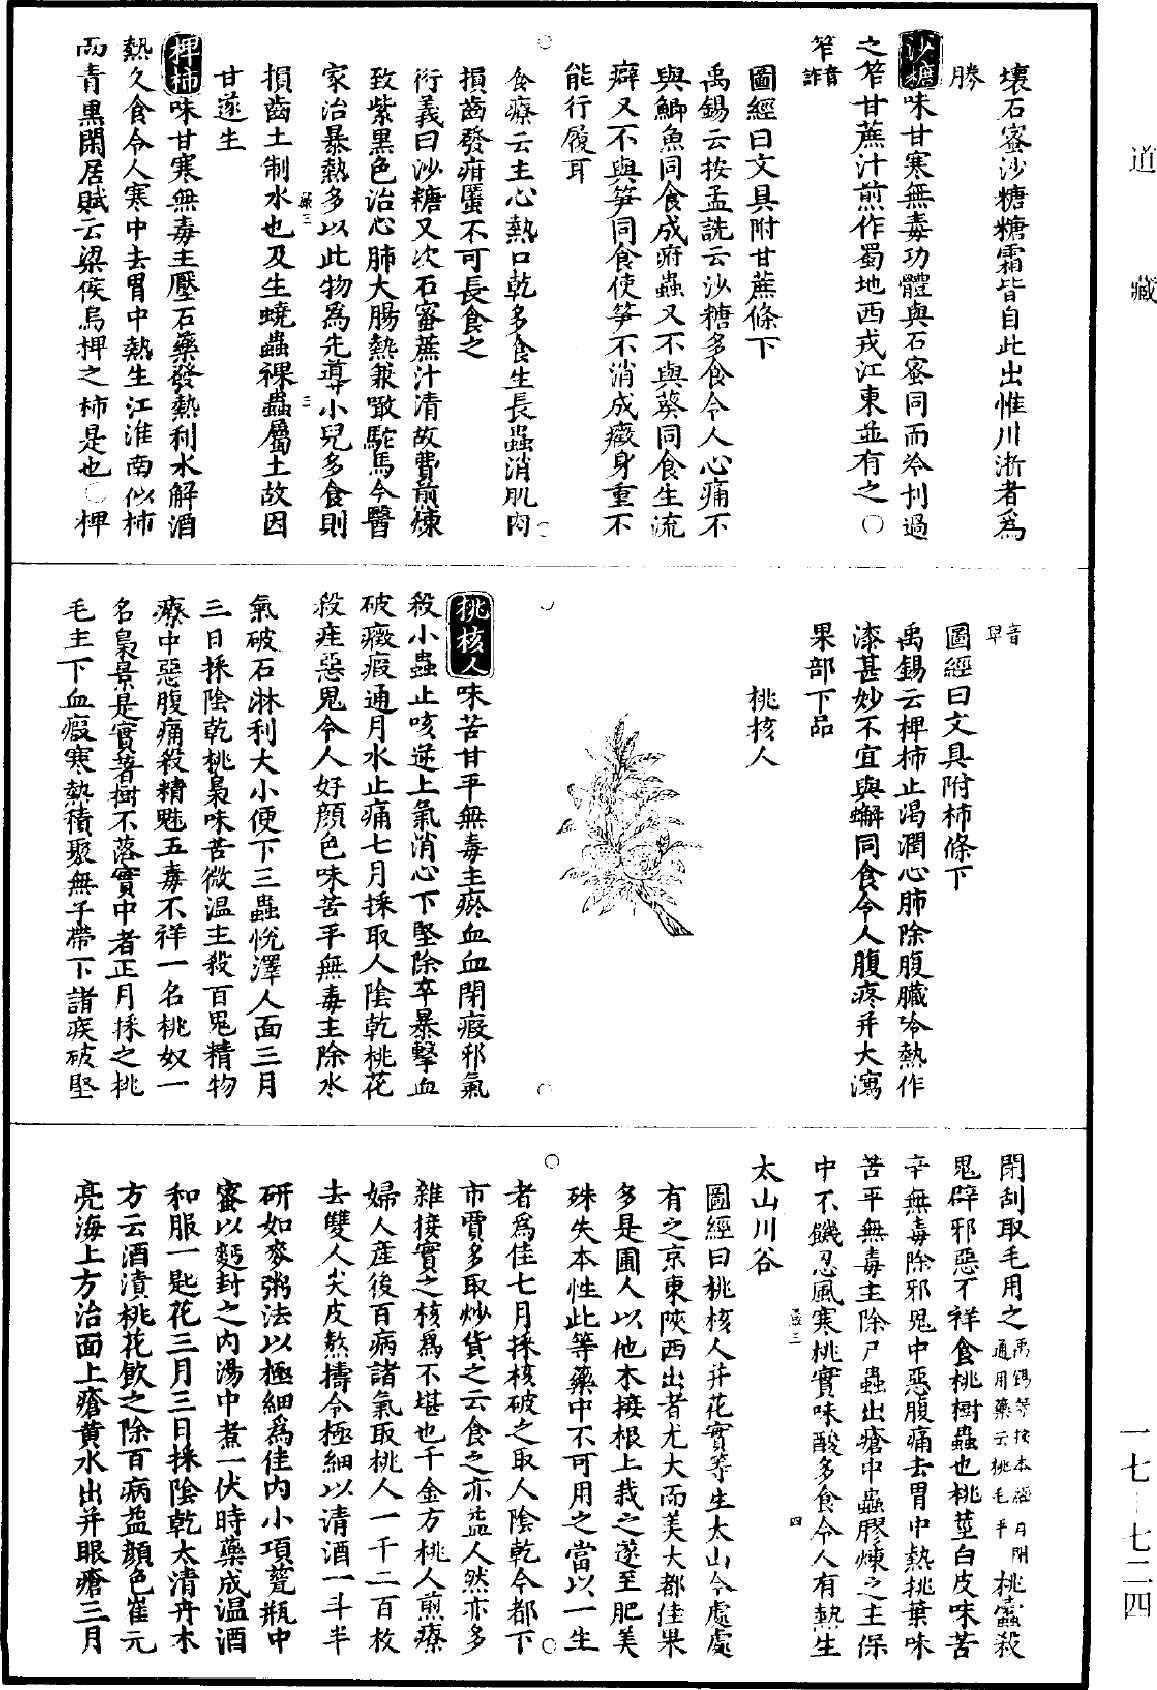 道藏
壞石蜜沙糖糖霜皆自此出惟川浙者爲
勝
沙糖味甘寒無毒功體與石蜜同而冷利過
之笮甘蔗汁煎作蜀地西戎江東並有之〇
笮音詐
圖經曰文具附甘蔗條下
禹錫云按孟詵云沙糖多食令人心痛不
與鯽魚同食成疳蟲又不與葵同食生流
癖又不與笋同食使笋不消成癥身重不
能行履耳
食療云主心熱口乾多食生長蟲消肌肉
損齒發疳䘌不可長食之
衍義曰沙糖又次石蜜蔗汁清故費煎煉
致紫黑色治心肺大腸熱兼啖駝馬今醫
家治暴熱多以此物爲先導小兒多食則
損齒土制水也及生蟯蟲裸蟲屬土故因
甘遂生
椑柿味甘寒無毒主壓石藥發熱利水解酒
熱久食令人寒中去胃中熱生江淮南似柿
而青黑閑居賦云梁侯烏椑之柿是也〇椑
音卑
圖經曰文具附柿條下
禹錫云椑柿止渴潤心肺除腹臟冷熱作
漆甚妙不宜與蠏同食令人腹疼并大瀉
果部下品
桃核人
桃核人味苦甘平無毒主瘀血血閉瘕邪氣
殺小蟲止咳逆上氣消心下堅除卒暴擊血
破癥瘕通月水止痛七月採取人陰乾桃花
殺疰惡鬼令人好顔色味苦平無毒主除水
氣破石淋利大小便下三蟲悅澤人面三月
三日採陰乾桃梟味苦微温主殺百鬼精物
療中惡腹痛殺精魅五毒不祥一名桃奴一
名梟景是實著樹不落實中者正月採之桃
毛主下血瘕寒熱積聚無子帶下諸疾破堅
閉刮取毛用之禹錫等按本經月閉通用藥云桃毛平桃蠹殺
鬼辟邪惡不祥食桃樹蟲也桃莖白皮味苦
辛無毒除邪鬼中惡腹痛去胃中熱桃葉味
苦平無毒主除尸蟲出瘡中蟲膠煉之主保
中不饑忍風寒桃實味酸多食令人有熱生
太山川谷
圖經曰桃核人并花實等生太山今處處
有之京東陝西出者尤大而美大都佳果
多是圃人以他木接根上栽之遂至肥美
殊失本性此等藥中不可用之當以一生
者爲佳七月採核破之取人陰乾今都下
市賈多取炒貨之云食之亦益人然亦多
雜接實之核爲不堪也千金方桃人煎療
婦人産後百病諸氣取桃人一千二百枚
去雙人尖皮熬擣令極細以清酒一斗半
研如麥粥法以極細爲佳内小項甆瓶中
蜜以麪封之内湯中煮一伏時藥成温酒
和服一匙花三月三日採陰乾太清丹木
方云酒漬桃花飲之除百病益顔色崔元
亮海上方治面上瘡黄水出并眼瘡三月
一七—七二四